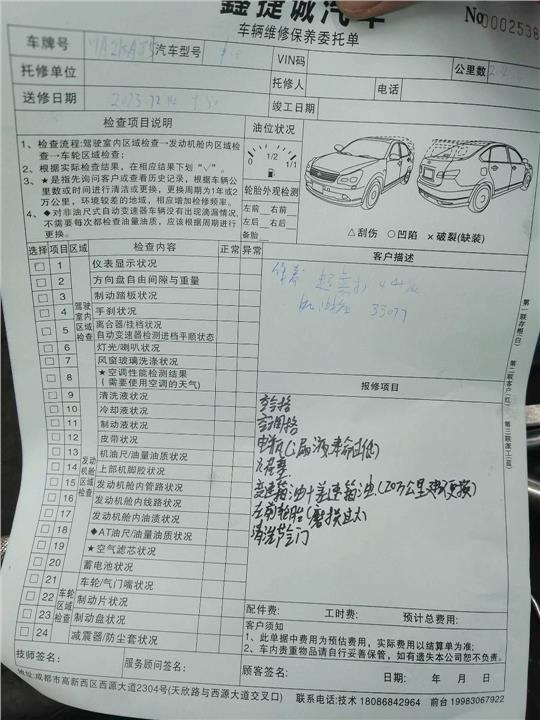 鑫捷诚汽车
No 0002538
车辆维修保养委托单
车牌号 汽车型号 VIN码 公里数
托修单位 托修人 电话
送修日期 竣工日期
检查项目说明
1、检查流程:驾驶室内区域检查→发动机舱内区域检查→车轮区域检查;
2、根据实际检查结果,在相应结果下划“√”。
3、★是指先询问客户或查看历史记录,根据车辆公里数或时间进行清洁或更换,更换周期为1年或2万公里,环境较差的地域,相应增加检修频率。
4、◆对非油尺式自动变速器车辆没有出现滴漏情况,不需要每次都检查油量油质,应该根据周期进行更换。
油位状况
0 1/2 1/1
轮胎外观检测
左前 右前
左后 右后
备胎
△刮伤 ○凹陷 ×破裂(缺装)
选择 项目 区域 检查内容 正常 异常
驾驶室内区域检查
1 仪表显示状况
2 方向盘自由间隙与重量
3 制动踏板状况
4 手刹状况
5 离合器/挂档状况
自动变速器检测进档平顺状态
6 灯光/喇叭状况
7 风窗玻璃洗涤状况
8 ★空调性能检测结果
(需要使用空调的天气)
发动机舱内区域检查
9 清洗液状况
10 冷却液状况
11 制动液状况
12 皮带状况
13 机油/油量油质状况
14 上部机脚胶状况
15 发动机舱内管路状况
16 发动机舱内线路状况
17 发动机舱内油渍状况
18 ◆AT油尺/油量油质状况
19 ★空气滤芯状况
20 蓄电池状况
车轮区域检查
21 车轮/气门嘴状况
22 制动片状况
23 制动盘状况
24 减震器/防尘套状况
客户描述
33077
报修项目
空气格
空调格
火花塞
变速箱油+差速箱油(20万公里建议更换)
左前轮胎(磨损过大)
清洗节气门
第一联存根(白)
第二联客户(红)
第三联派工(蓝)
配件费: 工时费: 预计总费用:
客户须知
1、此单据中费用为预估费用,实际费用以结算单为准;
2、车内贵重物品请自行妥善保管,如有遗失本公司恕不负责。
技师签名: 服务顾问签名: 顾客签名: 日期: 年 月 日
地址:成都市高新西区西源大道2304号(天欣路与西源大道交叉口) 联系电话:技术 18086842964 前台 19983067922